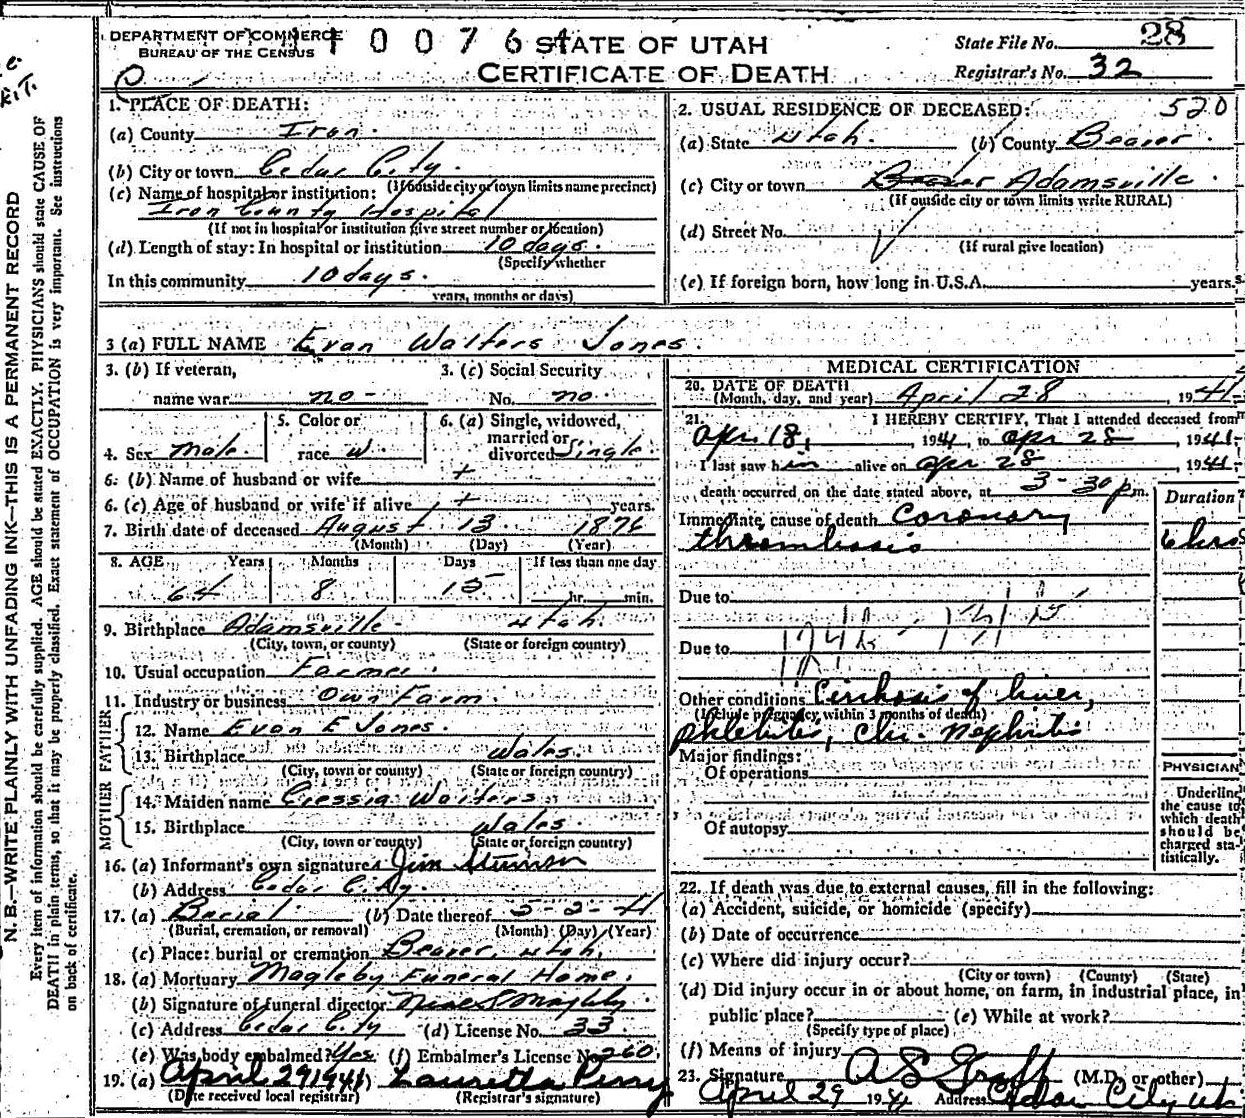 DEPARTMENT OF COMMERCE
BUREAU OF THE CENSUS
STATE OF UTAH
CERTIFICATE OF DEATH
State File No. 28
Registrar's No. 32
1. PLACE OF DEATH:
(a) County Iron.
(b) City or town Cedar City.
(If outside city or town limits name precinct)
(c) Name of hospital or institution:
Iron County Hospital
(If not in hospital or institution give street number or location)
(d) Length of stay: In hospital or institution 10 days.
(Specify whether
In this community 10 days.
years, months or days)
2. USUAL RESIDENCE OF DECEASED: 520
(a) State Utah. (b) County Beaver.
(c) City or town Beaver Adamsville.
(If outside city or town limits write RURAL)
(d) Street No.
(If rural give location)
(e) If foreign born, how long in U.S.A. years.
3 (a) FULL NAME Evan Walters Jones.
3. (b) If veteran,
name war no -
3. (c) Social Security
No. no.
4. Sex Male.
5. Color or
race w.
6. (a) Single, widowed,
married or
divorced Single.
6. (b) Name of husband or wife +
6. (c) Age of husband or wife if alive + years.
7. Birth date of deceased August 13 1876
(Month) (Day) (Year)
8. AGE Years Months Days If less than one day
64 8 15 hr. min.
9. Birthplace Adamsville. Utah.
(City, town, or county) (State or foreign country)
10. Usual occupation Farmer.
11. Industry or business Own Farm.
FATHER
12. Name Evan E Jones.
13. Birthplace Wales.
(City, town or county) (State or foreign country)
MOTHER
14. Maiden name Cressia Walters
15. Birthplace Wales.
(City, town or county) (State or foreign country)
16. (a) Informant's own signature Jim
(b) Address Cedar City.
17. (a) Burial. (b) Date thereof 5-2-41
(Burial, cremation, or removal) (Month) (Day) (Year)
(c) Place: burial or cremation Beaver, Utah.
18. (a) Mortuary Magleby Funeral Home.
(b) Signature of funeral director Magleby.
(c) Address Cedar City (d) License No. 33
(e) Was body embalmed? Yes. (f) Embalmer's License No. 260.
19. (a) April 29 1941 Lauretta Perry
(Date received local registrar) (Registrar's signature)
MEDICAL CERTIFICATION
20. DATE OF DEATH
(Month, day, and year) April 28, 1941.
21. I HEREBY CERTIFY, That I attended deceased from
Apr 18, 1941, to Apr 28 1941.
I last saw him alive on Apr 28 1941.
death occurred on the date stated above, at 3-30 p m.
Duration
Immediate cause of death Coronary
thrombosis 6 hrs
Due to
Due to
Other conditions Cirrhosis of liver,
(Include pregnancy within 3 months of death)
phlebitis, chr. Nephritis
Major findings:
Of operations
Of autopsy
PHYSICIAN
Underline
the cause to
which death
should be
charged sta-
tistically.
22. If death was due to external causes, fill in the following:
(a) Accident, suicide, or homicide (specify)
(b) Date of occurrence
(c) Where did injury occur?
(City or town) (County) (State)
(d) Did injury occur in or about home, on farm, in industrial place, in
public place? (e) While at work?
(Specify type of place)
(f) Means of injury
23. Signature A S Graff (M.D. or other)
April 29 1941 Address Cedar City Ut
N. B.—WRITE PLAINLY WITH UNFADING INK—THIS IS A PERMANENT RECORD
Every item of information should be carefully supplied. AGE should be stated EXACTLY. PHYSICIANS should state CAUSE OF
DEATH in plain terms, so that it may be properly classified. Exact statement of OCCUPATION is very important. See instructions
on back of certificate.